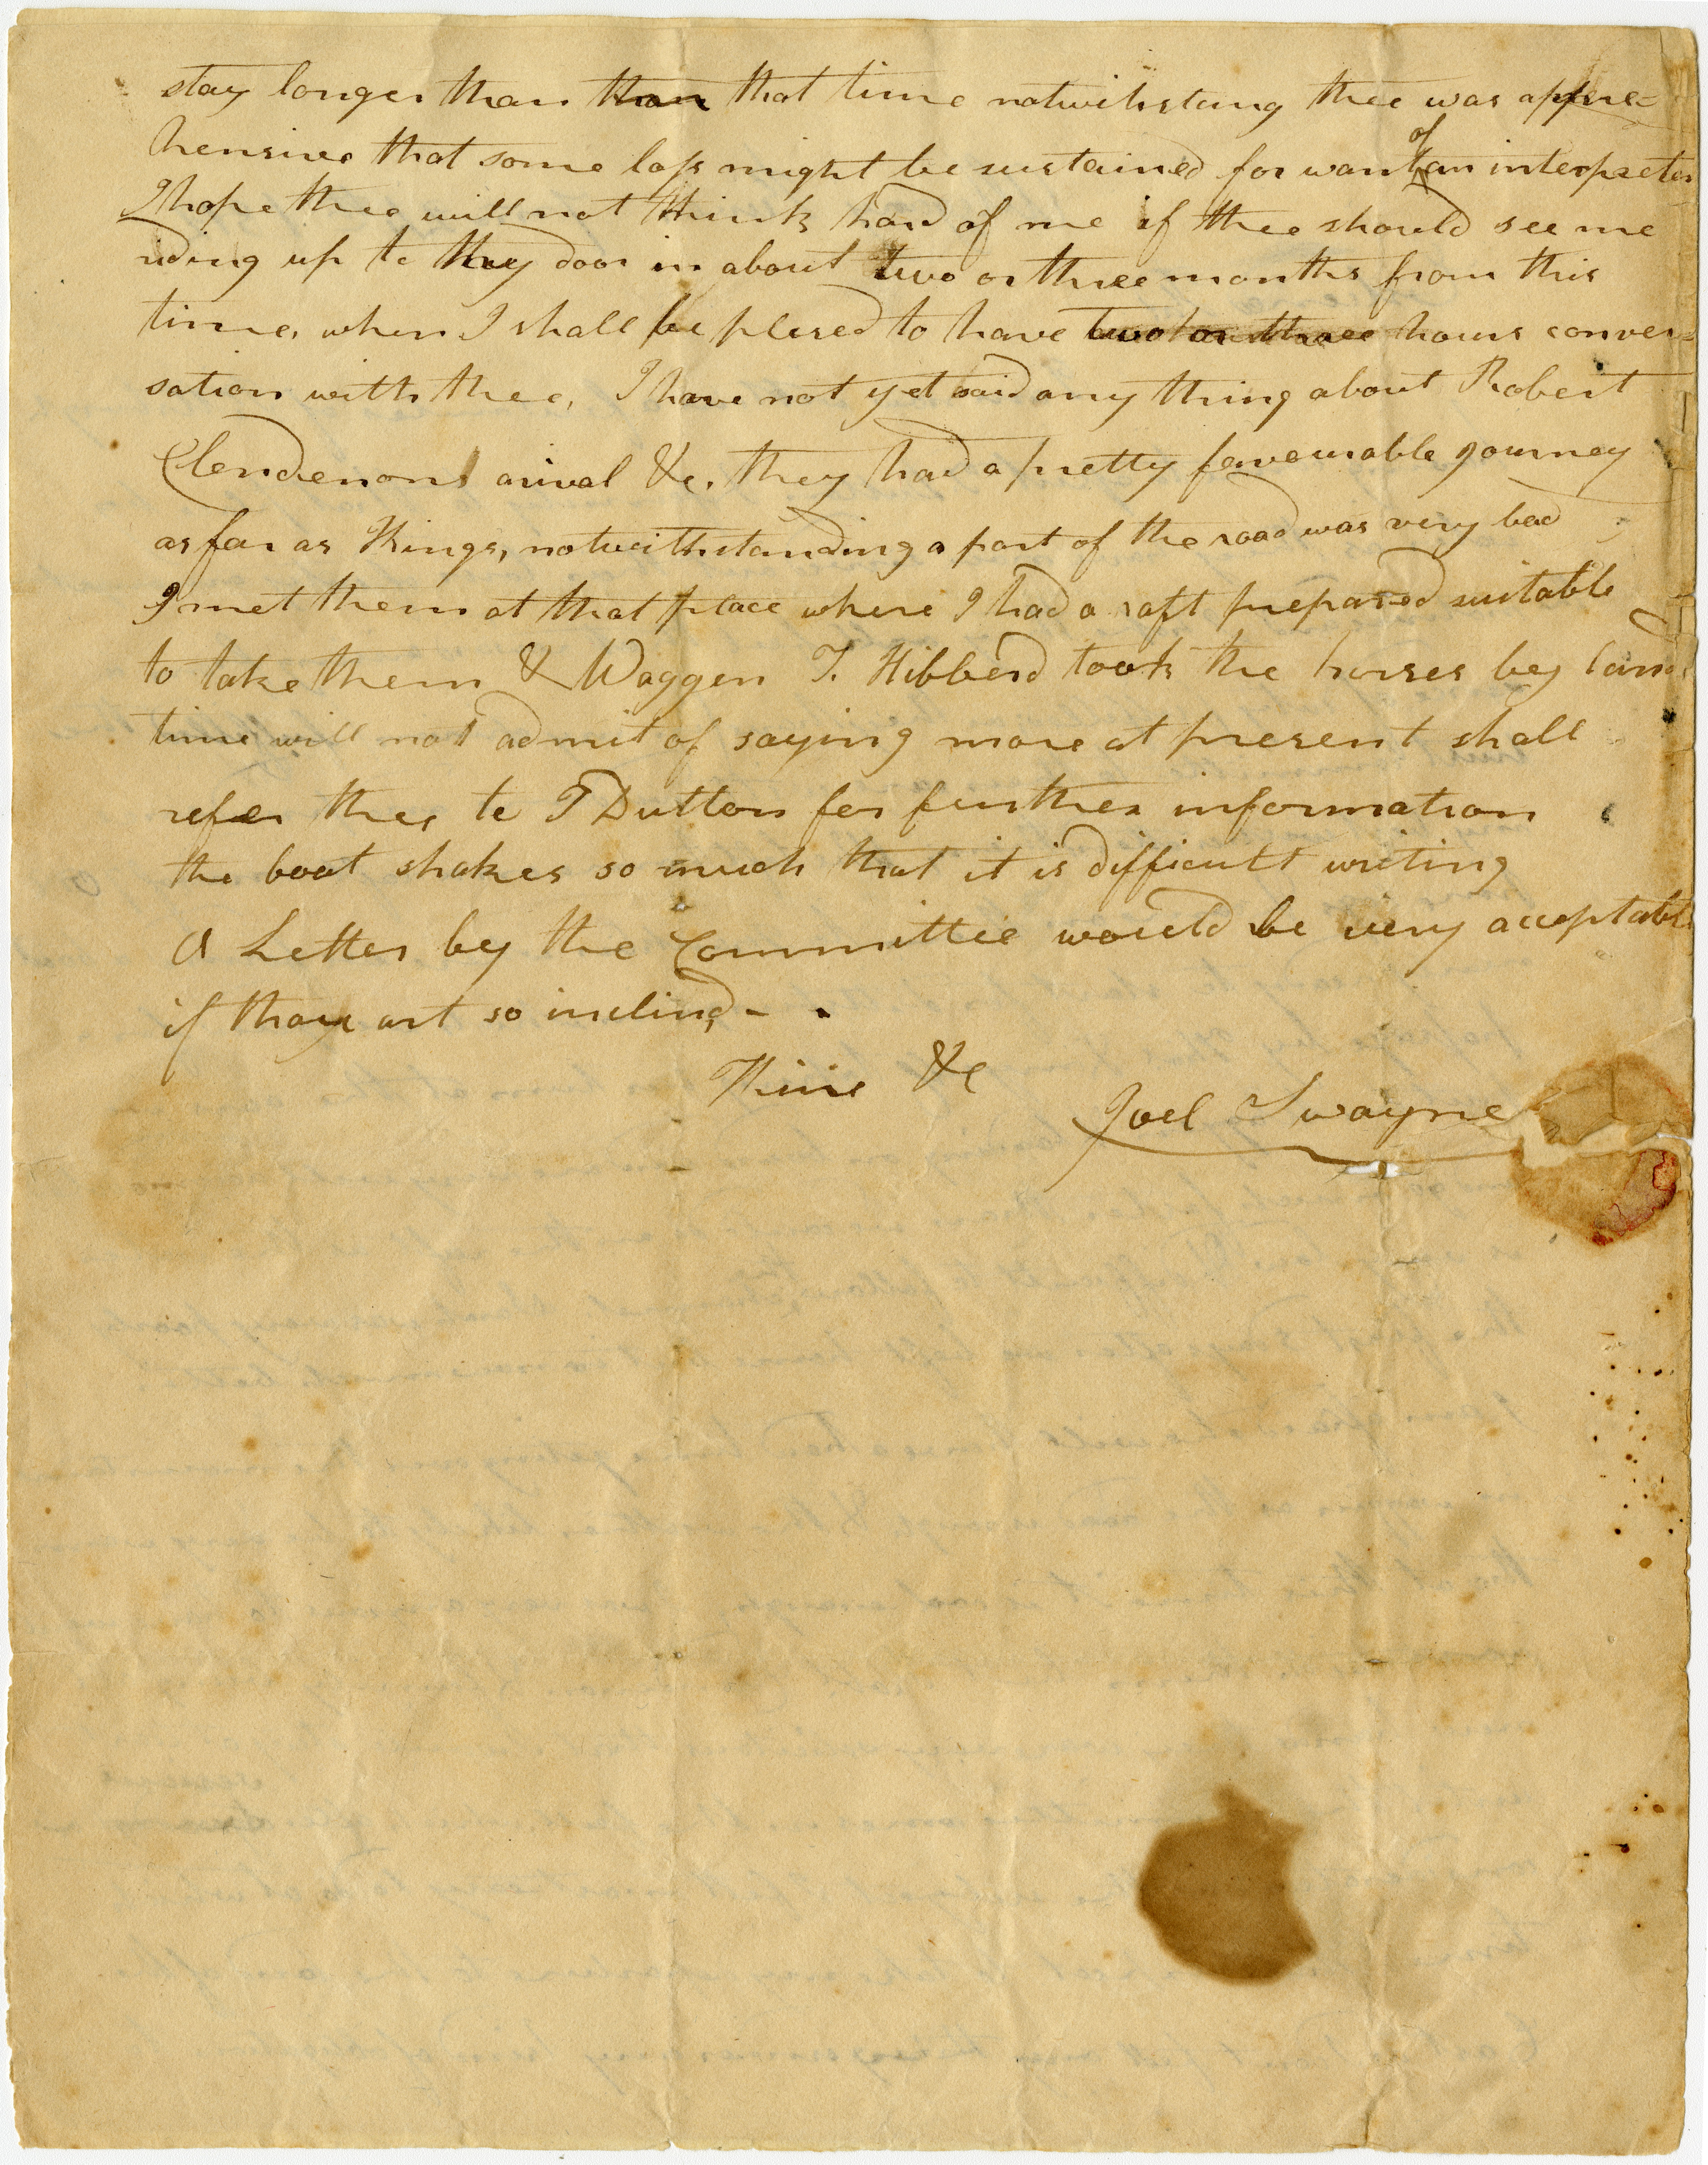 stay longer than than that time notwihstang thee was appre=
hensive that some loss might be sustained for want of an interpreter
I hope thee will not think hard of me if thee should see me
riding up to thy door in about two or three months from this
time, when I shall be plesed to have two or three hours conver=
sation with thee, I have not yet said any thing about Robert
Clendenons arival &c. they had a pretty favourable journey
as far as Kings, notwithstanding a part of the road was very bad
I met them at that place where I had a raft prepared suitable
to take them & Waggen T. Hibberd took the horses by land
time will not admit of saying more at present shall
refer thee to T Dutton for further information
the boat shakes so much that it is difficult writing
A Letter by the Committee would be very acceptable
if thou art so inclind -
Thine &c
Joel Swayne